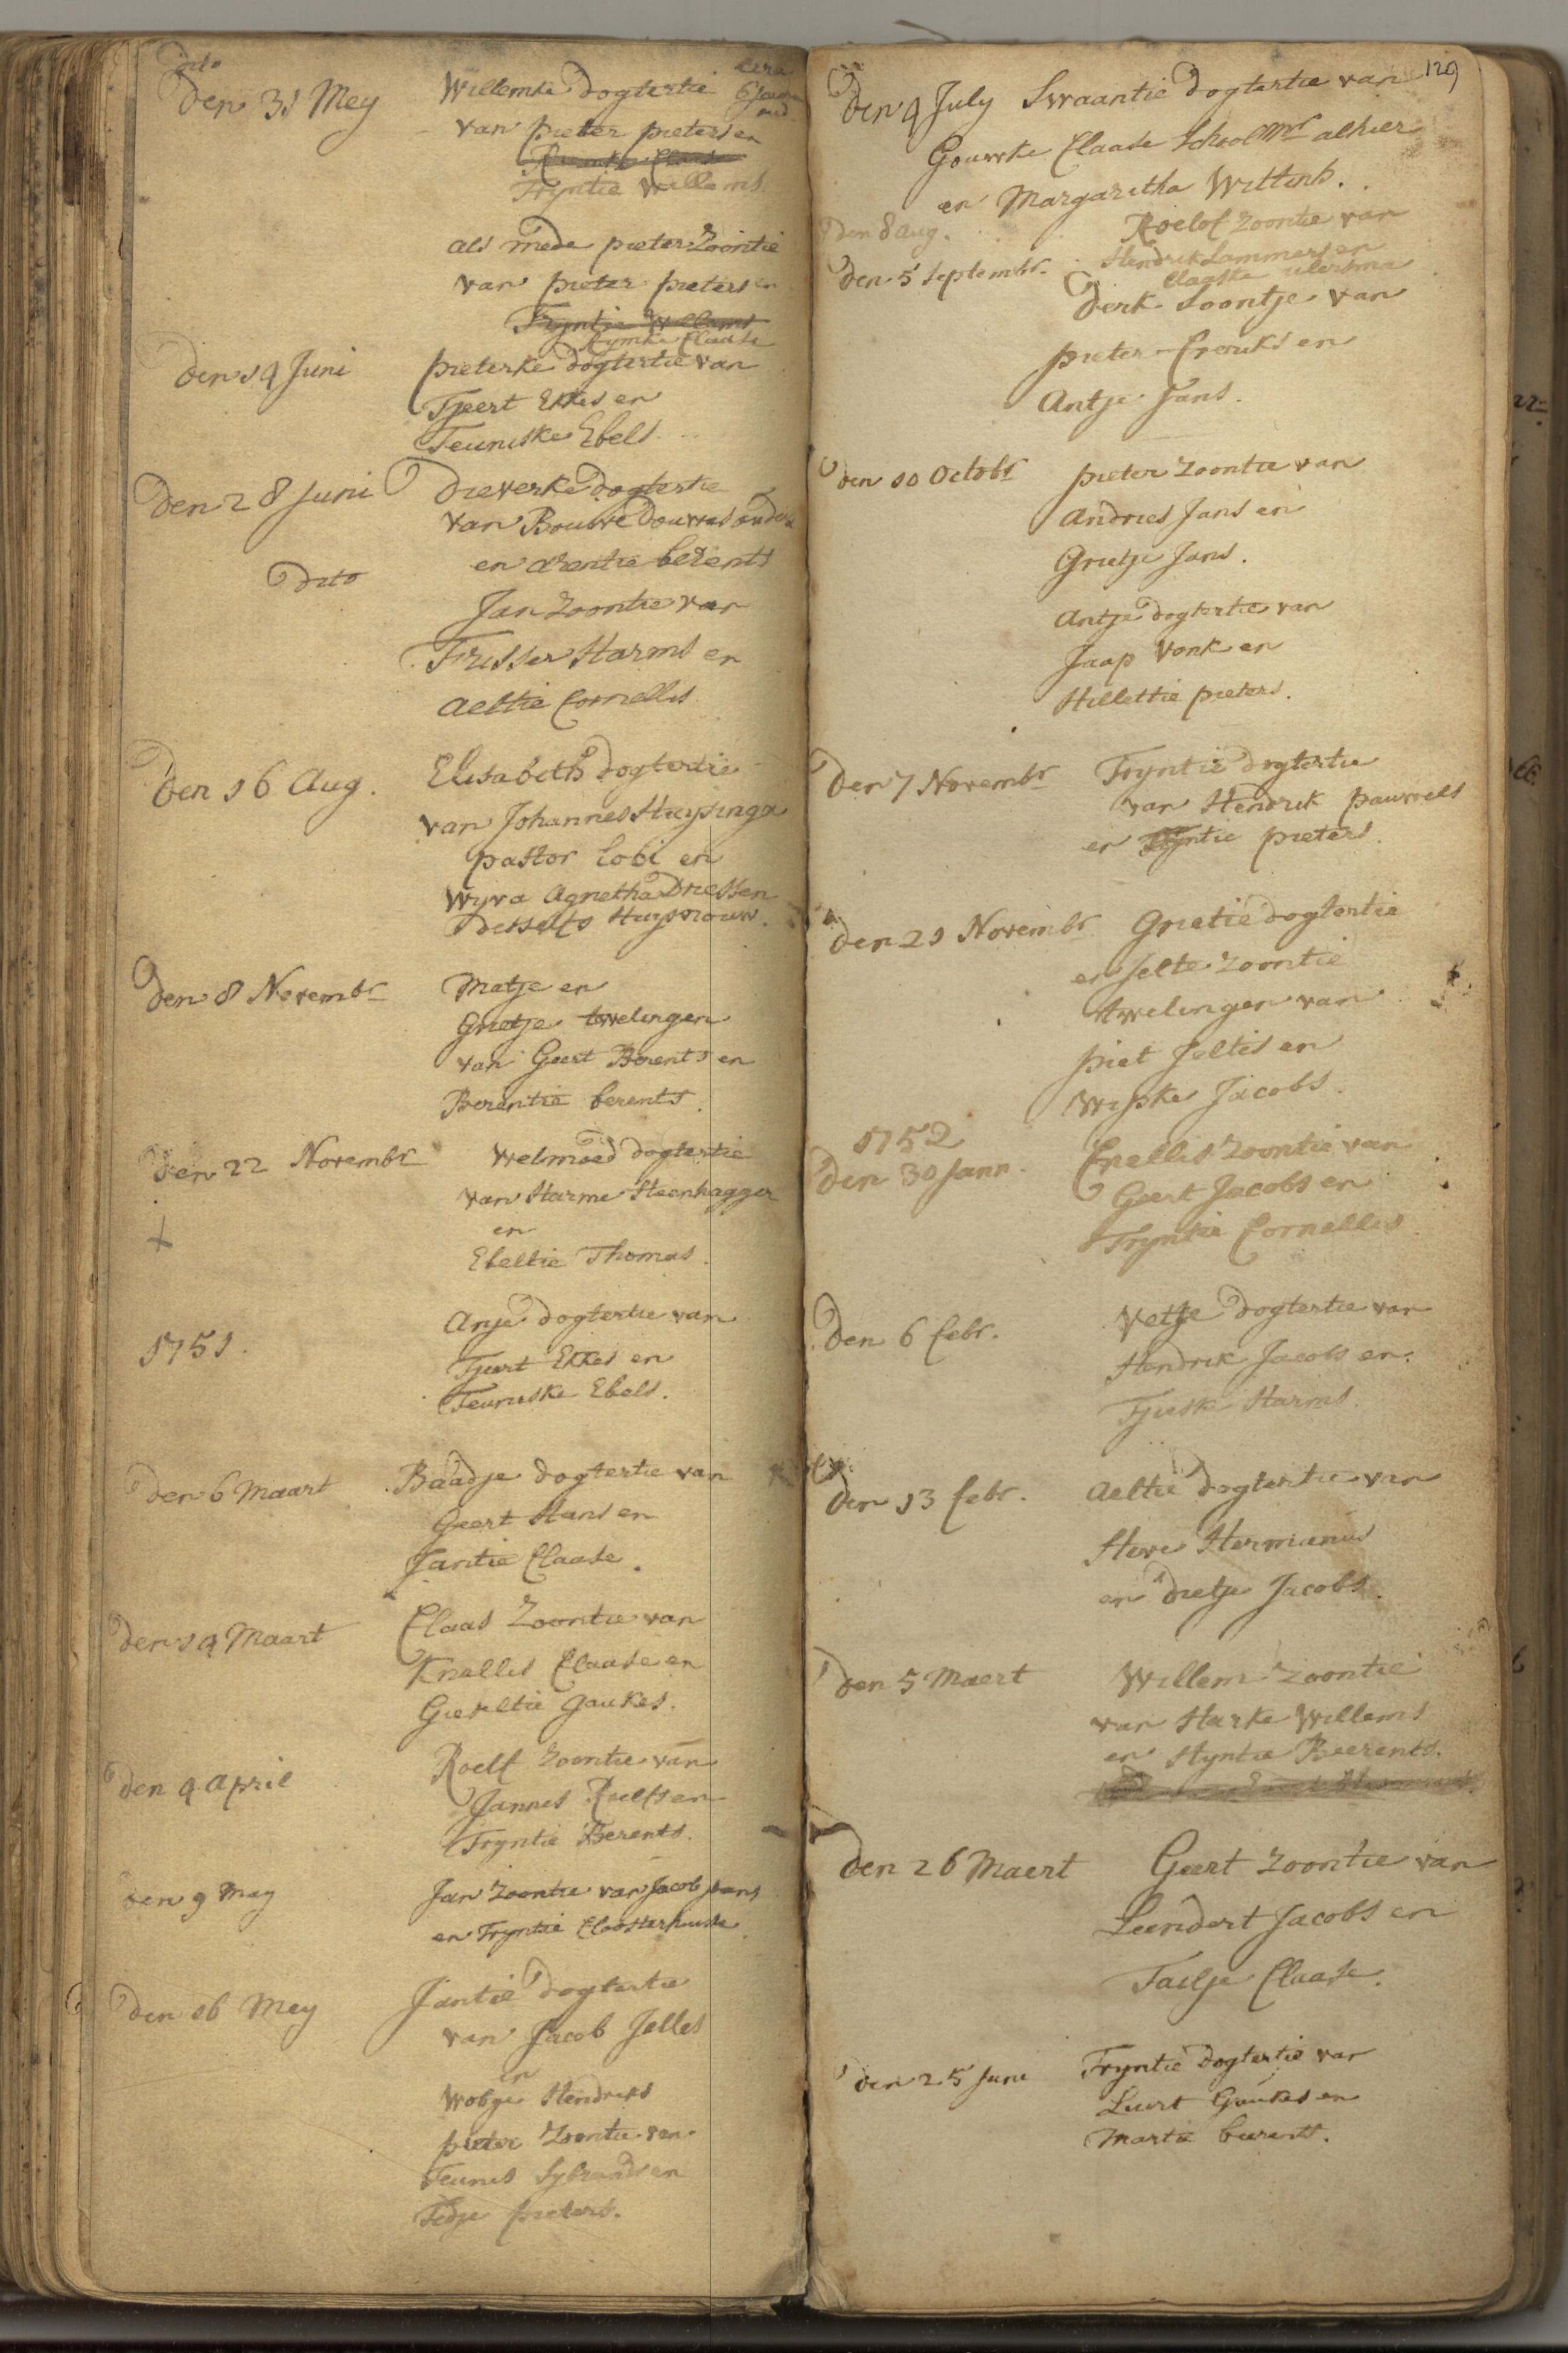 dito
den 31 Mey Willemke dogtertie
van pieter pieters en
Tryntie Willems
als mede pieter Zoontie
van pieter pieters en
Tryntie Willems
Rymke Claase
den 14 Juni pieterke dogtertie van
Tjeert Ekkes en
Teuniske Ebels
den 28 Juni Dieverke dogtertie
van Bouwe Douwes
en arentie berents
dito Jan Zoontie van
Harms en
aeltie Cornellis
Den 16 Aug. Elisabeth dogtertie
van Johannes Huysinga
pastor loci en
Wyva Agnetha Driessen
desselfs Huysvrouw.
den 8 Novembr Matje en
Grietje twelingen
van Geert Berents en
Berentie berents.
den 22 Novembr Welmoed dogtertie
van Harme Steenhagger
en
Ebeltie Thomas.
1751. Anje dogtertie van
Tjeert Ekkes en
Teuniske Ebels.
den 6 Maart Baadje dogtertie van
Geert Hans en
Jantie Claase.
den 14 Maart Claas Zoontie van
Knellis Claase en
Gaukes.
den 4 april Roelf Zoontie van
Jannes Roelfs en
Tryntie Berents.
den 9 May Jan Zoontie van Jacob
en Tryntie Cloosterhuis
den 16 Mey Jantie dogtertie
van Jacob Jelles
en
Wobje Hendriks
pieter Zoontie van
Teunes Sybrands en
pieters.
129
den 4 July Swaantie dogtertie van
Gouwke Claase School Mr alhier
en Margaretha Wittinh.
den 8 aug. Roelof Zoontie van
Hendrik Lammers en
den 5 Septembr. Claaske
Derk Soontje van
pieter Freriks en
Antje Jans.
den 10 Octobr pieter Zoontie van
Andries Jans en
Grietje Jans.
Antje dogtertie van
Jaap Vonk en
Hillettie pieters.
Den 7 Novembr Tryntie dogtertie
van Hendrik pauwels
en pieters.
Den 21 Novembr Grietie dogtertie
en Jelte Zoontie
twelingen van
piet Jeltes en
Wipke Jacobs.
1752
Den 30 Jann. Cnellis Zoontie van
Geert Jacobs en
Tryntie Cornelles
Den 6 febr. Vetje dogtertie van
Hendrik Jacobs en
Harms.
Den 13 febr. Aeltie dogtertie van
Hermanus
en Dietje Jacobs.
Den 5 Maert Willem Zoontie
van Harke Willems
en Styntie Beerents.
Den 26 Maert Geert Zoontie van
Leendert Jacobs en
Claase.
den 25 Juni Tryntie dogtertie van
Luert Gaukes en
Martie beerents.